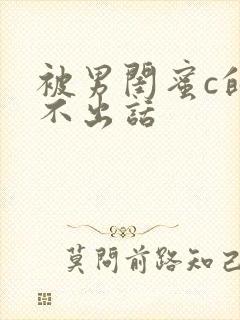 被男闺蜜c的
不出話
莫問前路知己